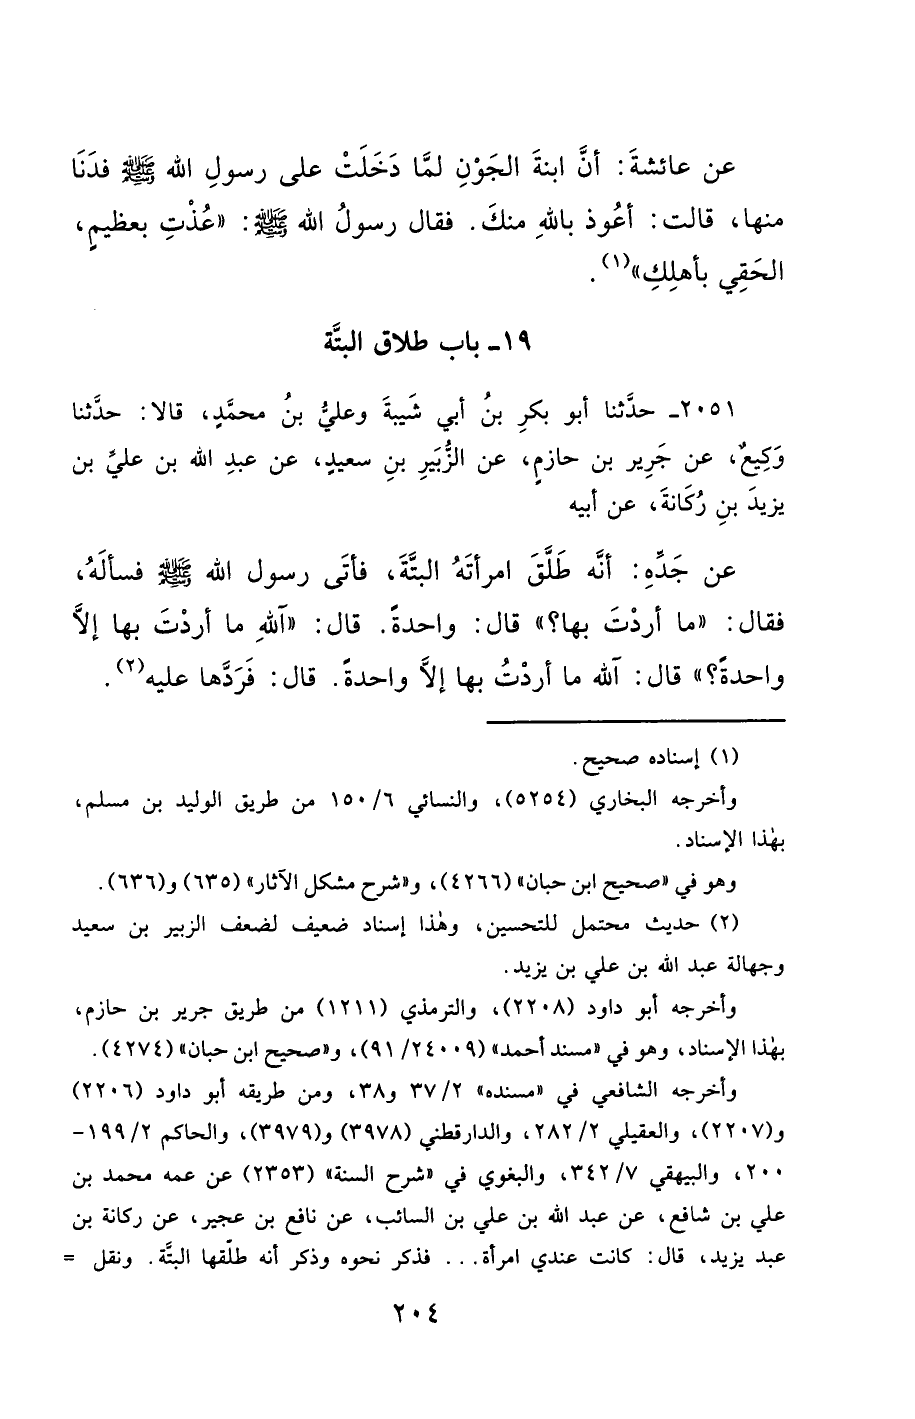 عن عائشةَ: أنَّ ابنةَ الجَوْنِ لمَّا دَخَلَتْ على رسولِ الله ﷺ فدَنَا
منها، قالت: أعُوذ باللهِ منكَ. فقال رسولُ الله ﷺ: «عُذْتِ بعظيمٍ،
الحَقِي بأهلِكِ»(١).
١٩ـ باب طلاق البتَّة
٢٠٥١ـ حدَّثنا أبو بكرِ بنُ أبي شَيبةَ وعليُّ بنُ محمَّدٍ، قالا: حدَّثنا
وَكِيعٌ، عن جَرِير بن حازمٍ، عن الزُّبَيرِ بنِ سعيدٍ، عن عبدِ الله بن عليِّ بن
يزيدَ بنِ رُكَانةَ، عن أبيه
عن جَدِّهِ: أنَّه طَلَّقَ امرأتَهُ البتَّةَ، فأتَى رسول الله ﷺ فسألَهُ،
فقال: «ما أردْتَ بها؟» قال: واحدةً. قال: «آللهِ ما أردْتَ بها إلاَّ
واحدةً؟» قال: آلله ما أردْتُ بها إلاَّ واحدةً. قال: فَرَدَّها عليه(٢).
(١) إسناده صحيح.
وأخرجه البخاري (٥٢٥٤)، والنسائي ٦/ ١٥٠ من طريق الوليد بن مسلم،
بهٰذا الإسناد.
وهو في «صحيح ابن حبان» (٤٢٦٦)، و«شرح مشكل الآثار» (٦٣٥) و(٦٣٦).
(٢) حديث محتمل للتحسين، وهٰذا إسناد ضعيف لضعف الزبير بن سعيد
وجهالة عبد الله بن علي بن يزيد.
وأخرجه أبو داود (٢٢٠٨)، والترمذي (١٢١١) من طريق جرير بن حازم،
بهٰذا الإسناد، وهو في «مسند أحمد» (٢٤٠٠٩/ ٩١)، و«صحيح ابن حبان» (٤٢٧٤).
وأخرجه الشافعي في «مسنده» ٢/ ٣٧ و٣٨، ومن طريقه أبو داود (٢٢٠٦)
و(٢٢٠٧)، والعقيلي ٢/ ٢٨٢، والدارقطني (٣٩٧٨) و(٣٩٧٩)، والحاكم ٢/ ١٩٩-
٢٠٠، والبيهقي ٧/ ٣٤٢، والبغوي في «شرح السنة» (٢٣٥٣) عن عمه محمد بن
علي بن شافع، عن عبد الله بن علي بن السائب، عن نافع بن عجير، عن ركانة بن
عبد يزيد، قال: كانت عندي امرأة... فذكر نحوه وذكر أنه طلّقها البتَّة. ونقل =
٢٠٤